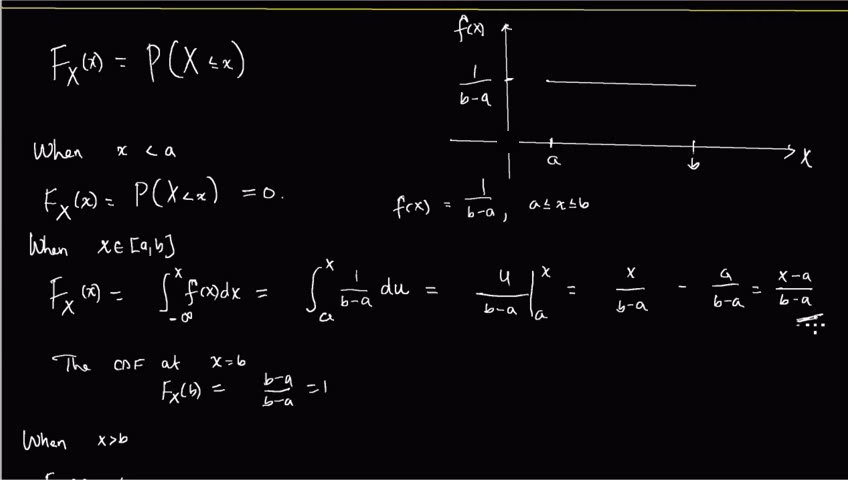 F_X(x) = P(X ≤ x)
f(x)
1/(b-a)
a b x
When x < a
F_X(x) = P(X<x) = 0.
f(x) = 1/(b-a), a ≤ x ≤ b
When x ∈ [a,b]
F_X(x) = ∫_{-∞}^{x} f(x)dx = ∫_a^x 1/(b-a) du = u/(b-a) |_a^x = x/(b-a) - a/(b-a) = (x-a)/(b-a)
The CDF at x=b
F_X(b) = (b-a)/(b-a) = 1
When x>b